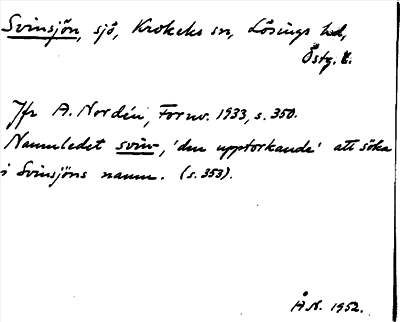 Svinsjön, sjö, Krokeks sn, Lösings hd,
Östg. l.
Jfr A. Nordén, Fornv. 1933, s. 350.
Namnledet svin-, 'den upptorkande' att söka
i Svinsjöns namn. (s. 353).
Å N. 1952.